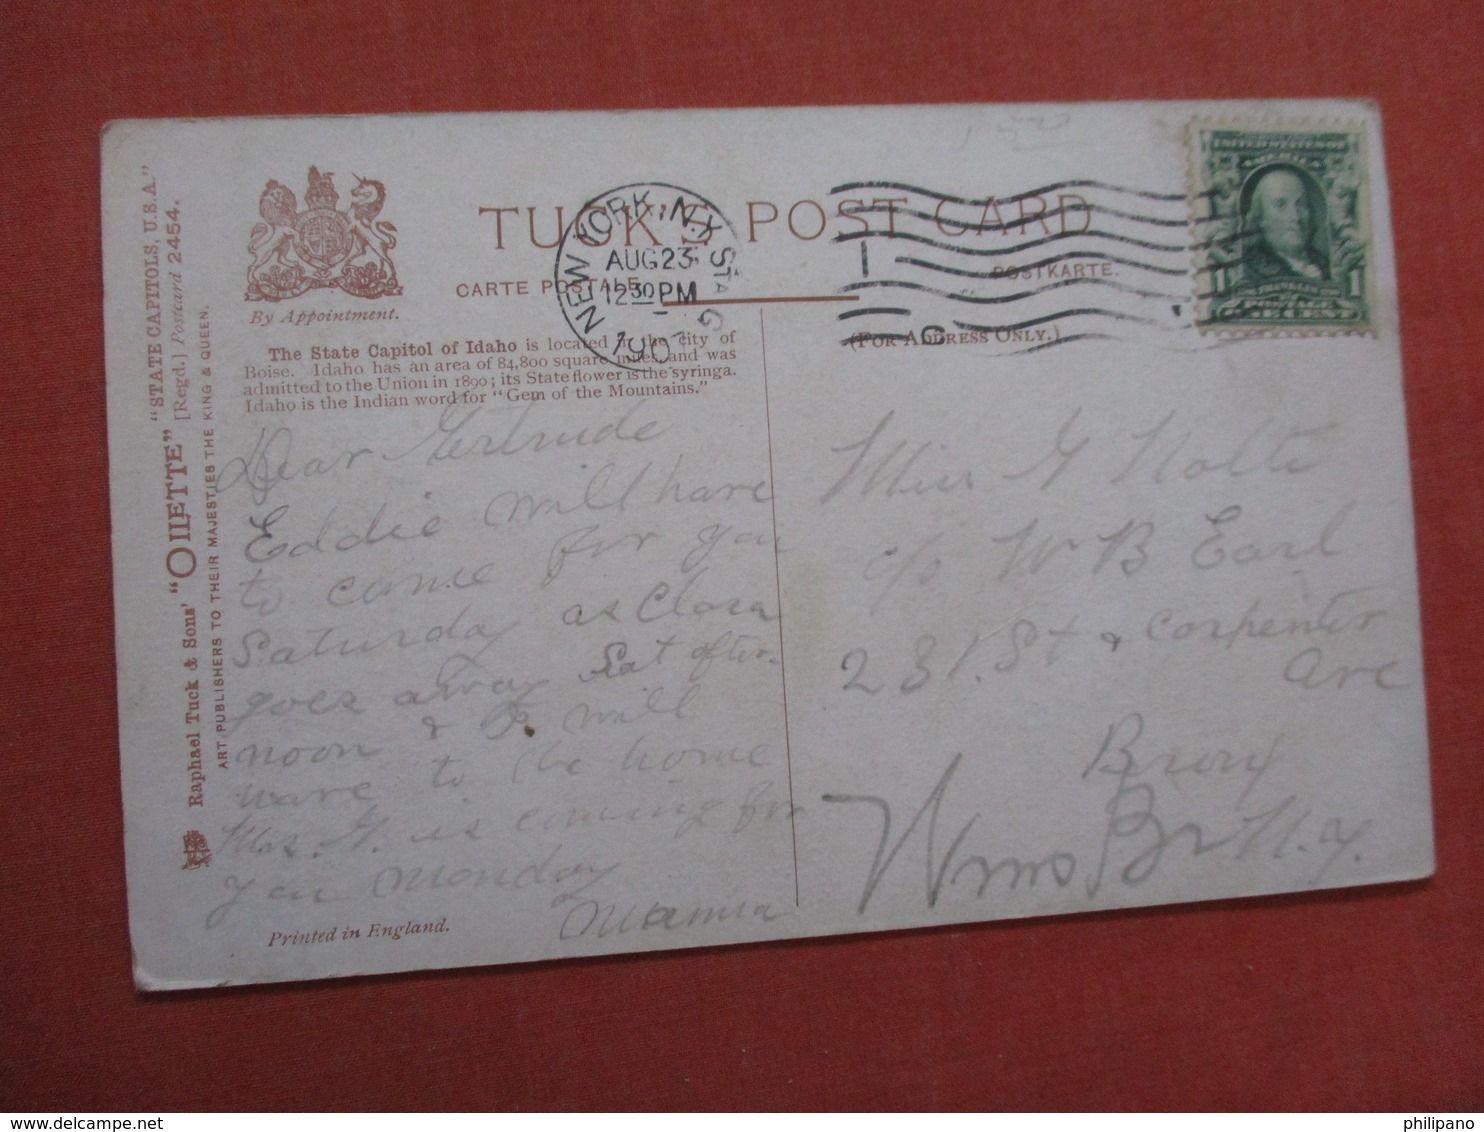 Raphael Tuck & Sons' "OIlETTE" "STATE CAPITOLS, U.S.A."
[Regd.] Postcard 2454.
ART PUBLISHERS TO THEIR MAJESTIES THE KING & QUEEN.
By Appointment.
TUCK'S POST CARD
CARTE POSTALE.
POSTKARTE.
(FOR ADDRESS ONLY.)
NEW YORK, N.Y. STA G
AUG 23
12 30 PM
190
UNITED STATES OF
AMERICA
1 1
FRANKLIN
POSTAGE
ONE CENT
The State Capitol of Idaho is located in the city of
Boise. Idaho has an area of 84,800 square miles, and was
admitted to the Union in 1890; its State flower is the syringa.
Idaho is the Indian word for "Gem of the Mountains."
Dear Gertrude
Eddie will have
to come for you
Saturday as Clara
goes away Sat after-
noon & I will
have to be home
Mrs. G. is coming for
you Monday
Mamma
Miss G Nolte
c/o W B Earl
231. St & Carpenter
Ave
Bronx
Wms Br N.Y.
Printed in England.
philipano